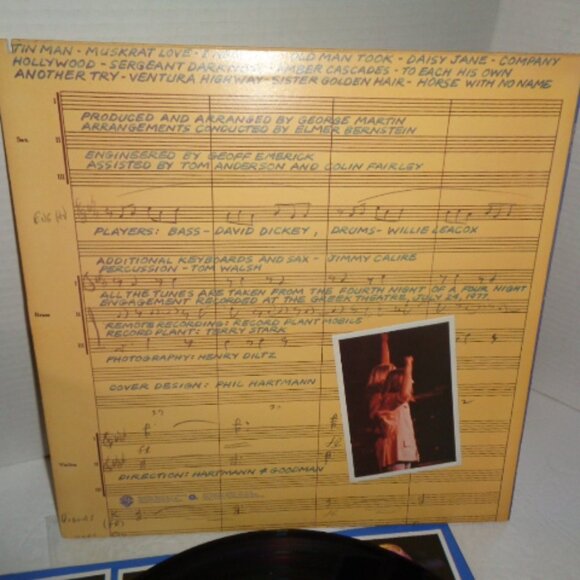 TIN MAN - MUSKRAT LOVE - OLD MAN TOOK - DAISY JANE - COMPANY
HOLLYWOOD - SERGEANT DARKNESS - AMBER CASCADES - TO EACH HIS OWN
ANOTHER TRY - VENTURA HIGHWAY - SISTER GOLDEN HAIR - HORSE WITH NO NAME
I
PRODUCED AND ARRANGED BY GEORGE MARTIN
ARRANGEMENTS CONDUCTED BY ELMER BERNSTEIN
II
ENGINEERED BY GEOFF EMERICK
ASSISTED BY TOM ANDERSON AND COLIN FAIRLEY
III
ENG HN
PLAYERS: BASS - DAVID DICKEY, DRUMS - WILLIE LEACOX
ADDITIONAL KEYBOARDS AND SAX - JIMMY CALIRE
PERCUSSION - TOM WALSH
I
ALL THE TUNES ARE TAKEN FROM THE FOURTH NIGHT OF A FOUR NIGHT
ENGAGEMENT RECORDED AT THE GREEK THEATRE, JULY 24, 1977
Horns
II
REMOTE RECORDING: RECORD PLANT MOBILE
RECORD PLANT: TERRY STARK
III
PHOTOGRAPHY: HENRY DILTZ
COVER DESIGN: PHIL HARTMANN
I
Violins
II
DIRECTION: HARTMANN & GOODMAN
III